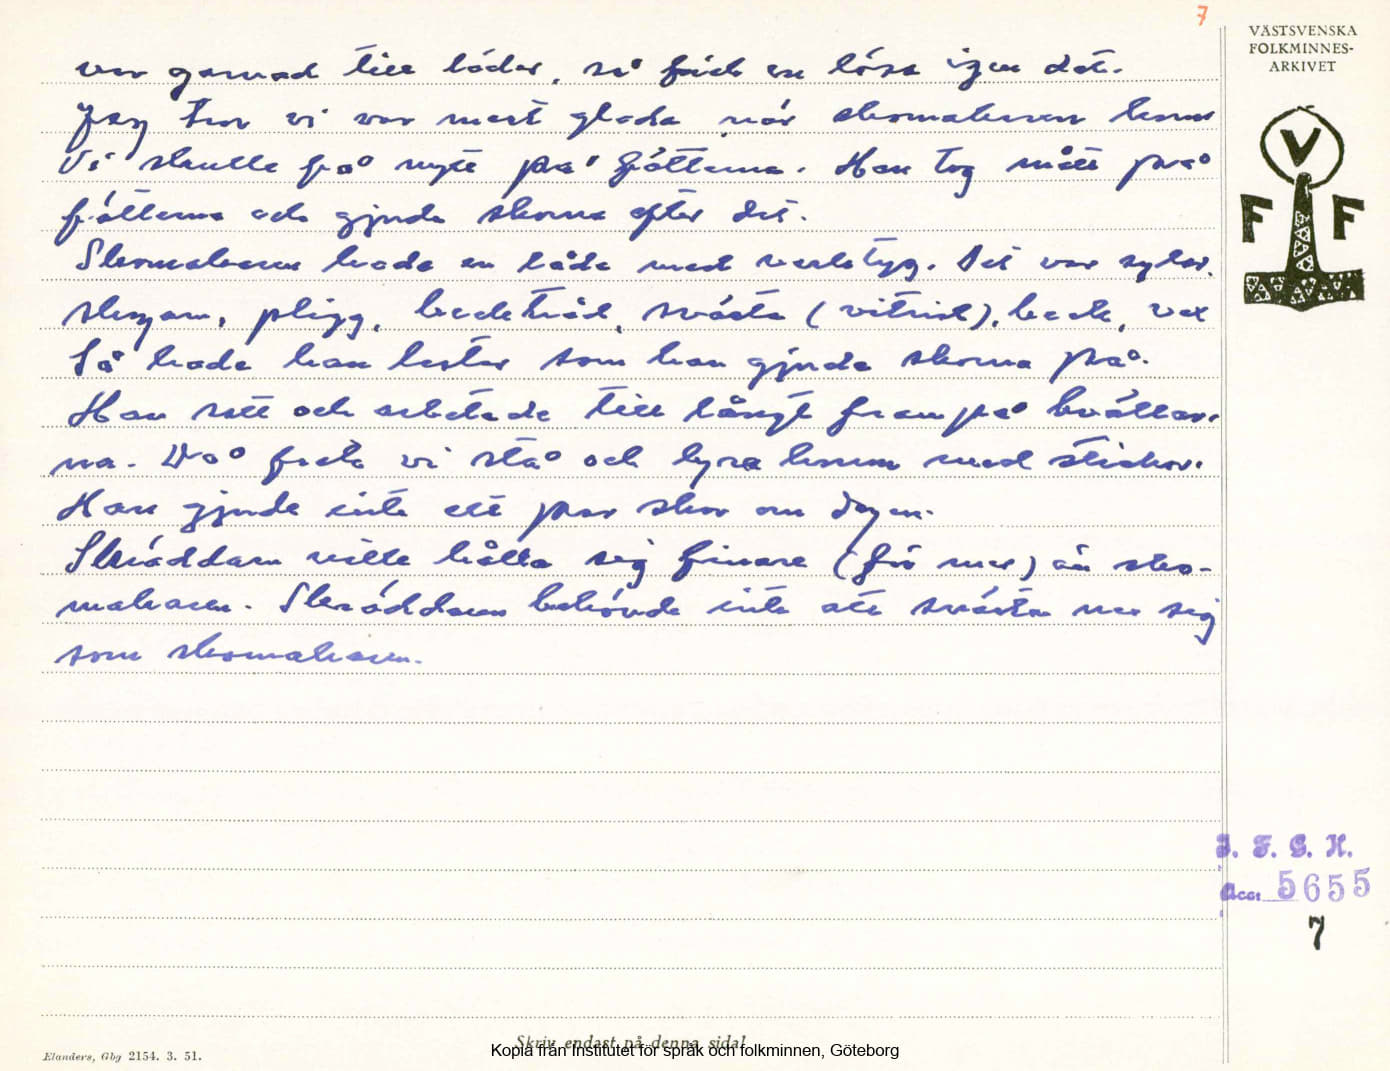 7
VÄSTSVENSKA
FOLKMINNES-
ARKIVET
V
F F
var garvad till läder, så fick en lösa igen det.
Jag tror vi var mest glada när skomakaren kom
Vi skulle få nytt på fötterna. Han tog mått på
fötterna och gjorde skorna efter det.
Skomakaren hade en låda med verktyg. Det var sylar,
skogarn, pligg, becktråd, svärta (vitriol), beck, vax
Så hade han lester som han gjorde skorna på.
Han satt och arbetade till långt fram på kvällar-
na. Då fick vi stå och lysa honom med stickor.
Han gjorde inte ett par skor om dagen.
Skräddarn ville hålla sig finare (för mer) än sko-
makaren. Skräddaren behövde inte att svärta ner sig
som skomakaren.
I. F. G. H.
Acc. 5655
7
Skriv endast på denna sida!
Kopia från Institutet för språk och folkminnen, Göteborg
Elanders, Gbg 2154. 3. 51.